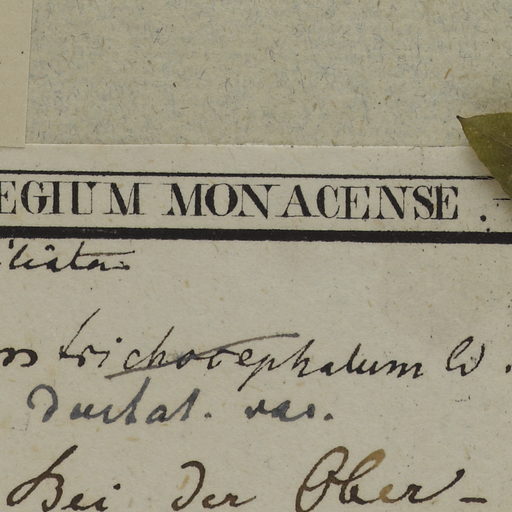 EGIUM MONACENSE.
iliata
os trichocephalum W.
var.
Bei der Ober-